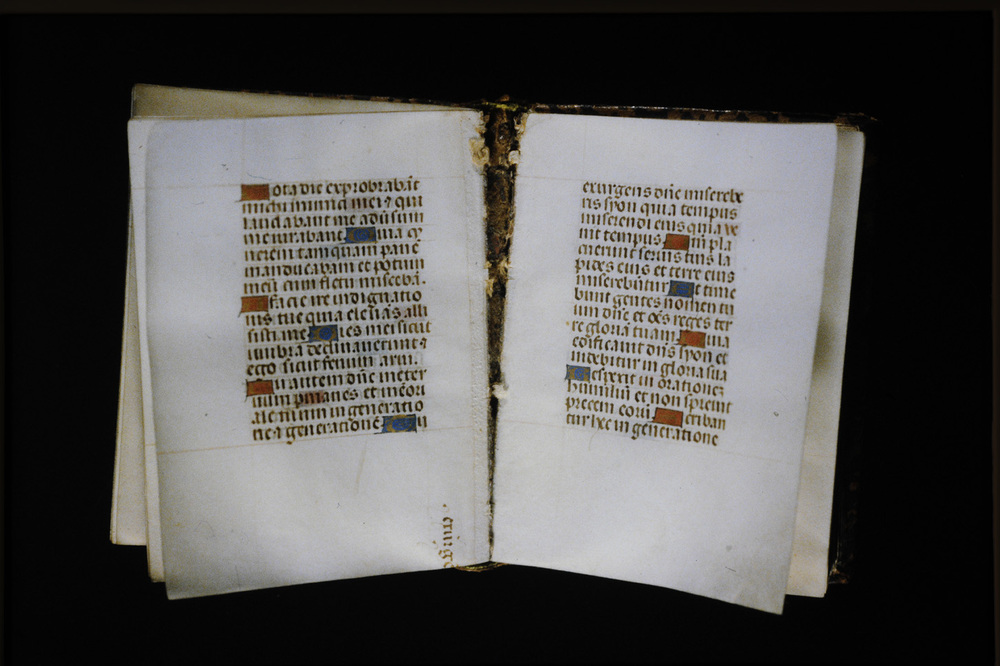 Tota die exprobrabāt
michi inimici mei ⁊ qui
laudabant me adūsum
me iurabant Quia ci
nerem tamquam panē
manducabam et potum
meū cum fletu miscebā.
A facie ire indignatio
nis tue quia eleuans alli
sisti me Dies mei sicut
umbra declinauerunt ⁊
ego sicut fenum arui.
Tu autem dn̄e in eter
num pmanes et memori
ale tuum in generatio
ne ⁊ generationē Tu
exurgens dn̄e miserebe
ris syon quia tempus
miserendi eius quia ve
nit tempus Qm̄ pla
cuerunt seruis tuis la
pides eius et terre eius
miserebūtur Et time
bunt gentes nomen tu
um dn̄e et oēs reges ter
re gloriā tuam Quia
edificauit dn̄s syon et
uidebitur in gloria sua
Respexit in orationeȝ
humiliū et non spreuit
precem eorū Scriban
tur hec in generatione